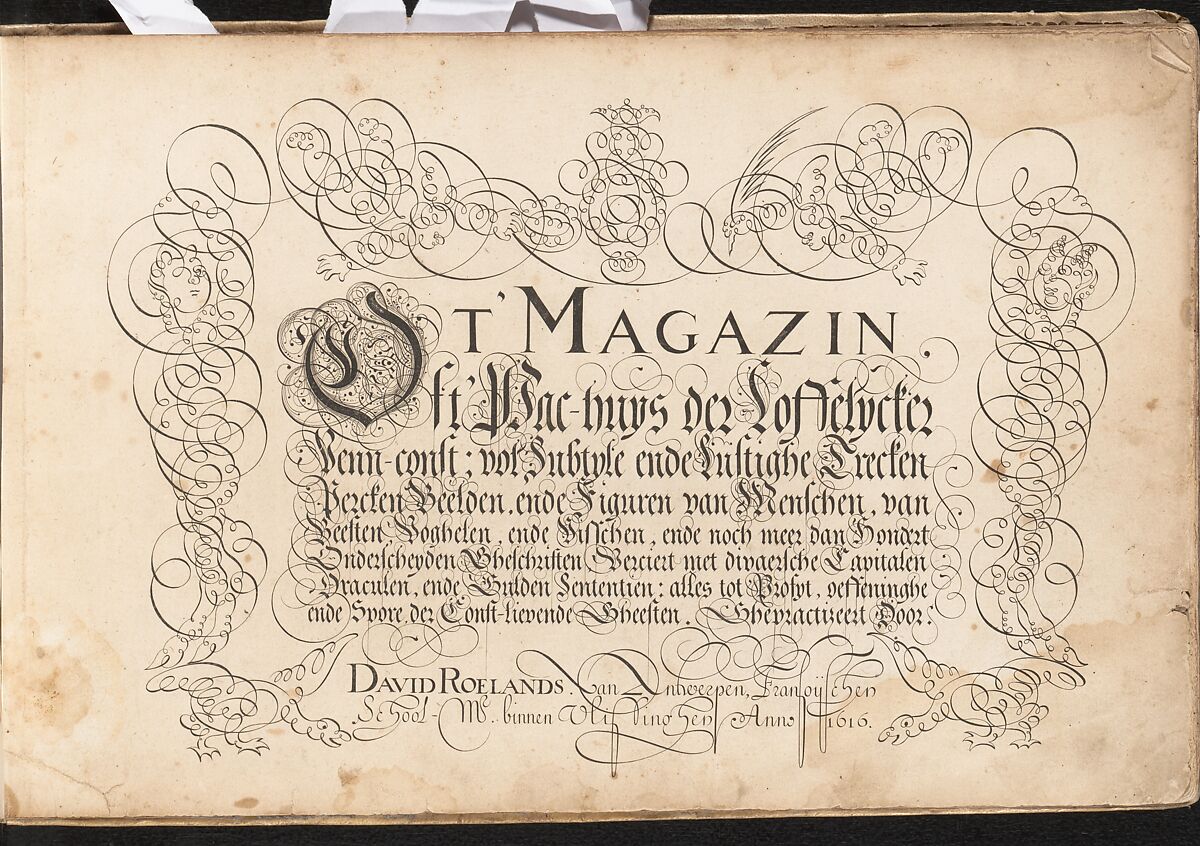 T' MAGAZIN.
Oft' Pac-huys der Loffelycker
Penn-const; vol Subtyle ende Lustighe Trecken
Percken Beelden, ende Figuren van Menschen, van
Beesten, Voghelen, ende Visschen, ende noch meer dan Hondert
Onderscheyden Gheschriften Verciert met divaersche Capitalen
Oraculen, ende Gulden Sententien: alles tot Profyt, oeffeninghe
ende Spore der Const-lievende Gheesten. Ghepractizeert Door:
DAVID ROELANDS. Van Antwerpen, Fransoijschen
School-Mr. binnen Vlissinghen Anno 1616.